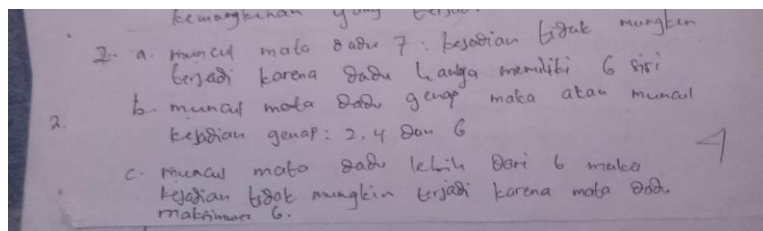 kemungkinan yang terjadi
2. a. muncul mata dadu 7 : kejadian tidak mungkin
terjadi karena dadu hanya memiliki 6 sisi
b. muncul mata dadu genap maka akan muncul
2.
kejadian genap : 2, 4 dan 6
c. muncul mata dadu lebih dari 6 maka
kejadian tidak mungkin terjadi karena mata dadu
maksimum 6.
4